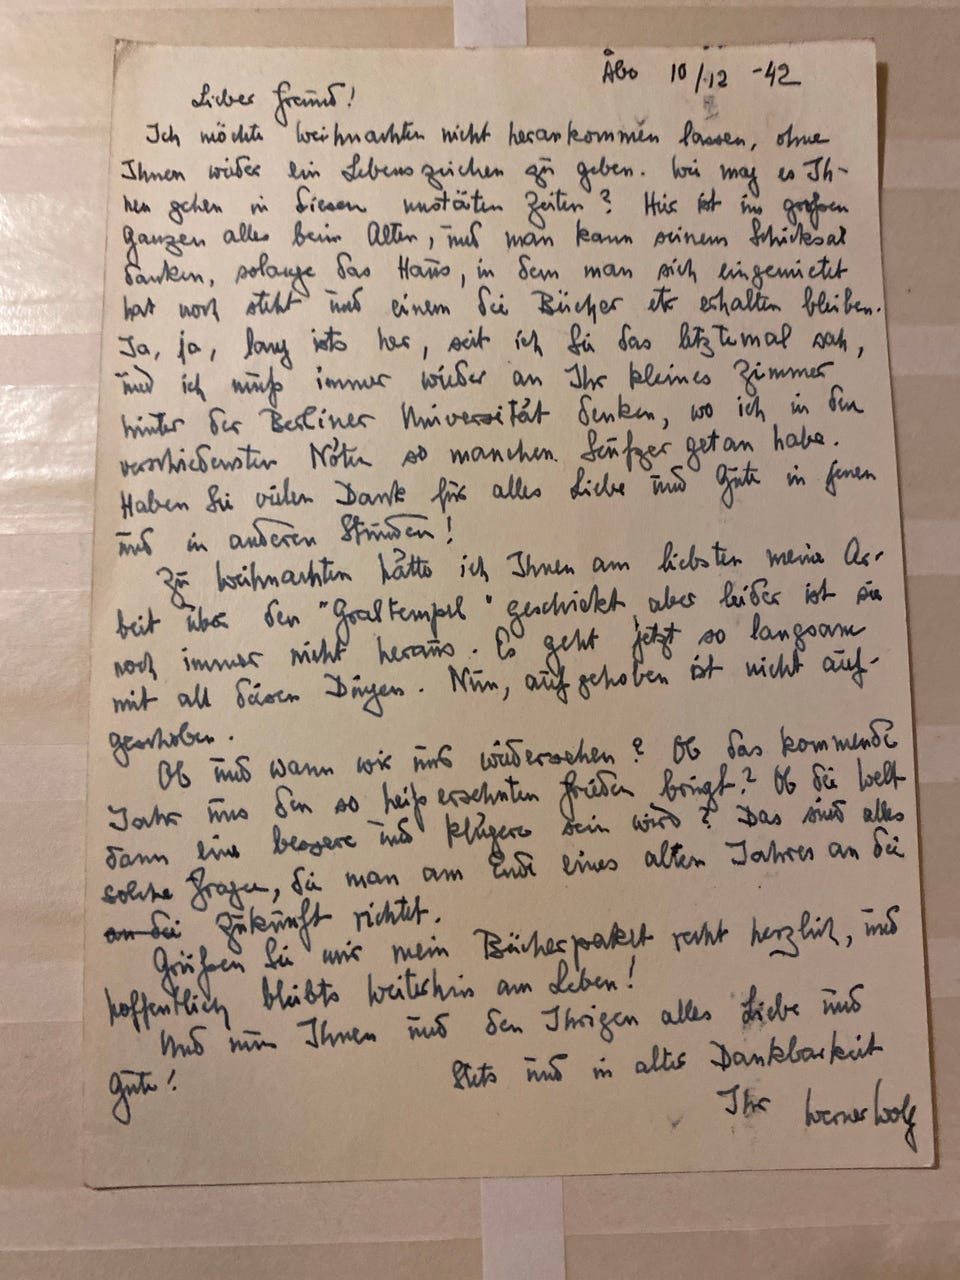 Åbo 10/12 -42
Lieber Freund!
Ich möchte Weihnachten nicht herankommen lassen, ohne
Ihnen wieder ein Lebenszeichen zu geben. Wie mag es Ih-
nen gehen in diesen unstäten Zeiten? Hier ist im großen
Ganzen alles beim Alten, und man kann seinem Schicksal
danken, solange das Haus, in dem man sich eingemietet
hat noch steht und einem die Bücher etc erhalten bleiben.
Ja, ja, lang ists her, seit ich Sie das letztemal sah,
und ich muß immer wieder an Ihr kleines Zimmer
hinter der Berliner Universität denken, wo ich in den
verschiedensten Nöten so manchen Seufzer getan habe.
Haben Sie vielen Dank für alles Liebe und Gute in jenen
und in anderen Stunden!
Zu Weihnachten hätte ich Ihnen am liebsten meine Ar-
beit über den "Graltempel" geschickt, aber leider ist sie
noch immer nicht heraus. Es geht jetzt so langsam
mit all diesen Dingen. Nun, aufgehoben ist nicht auf-
geschoben.
Ob und wann wir uns wiedersehen? Ob das kommende
Jahr uns den so heiß ersehnten Frieden bringt? Ob die Welt
dann eine bessere und klügere sein wird? Das sind alles
solche Fragen, die man am Ende eines alten Jahres an die
an die Zukunft richtet.
Grüßen Sie mir mein Bücherpaket recht herzlich, und
hoffentlich bleibts weiterhin am Leben!
Und nun Ihnen und den Ihrigen alles Liebe und
Gute! Stets und in alter Dankbarkeit
Ihr Werner Wolf